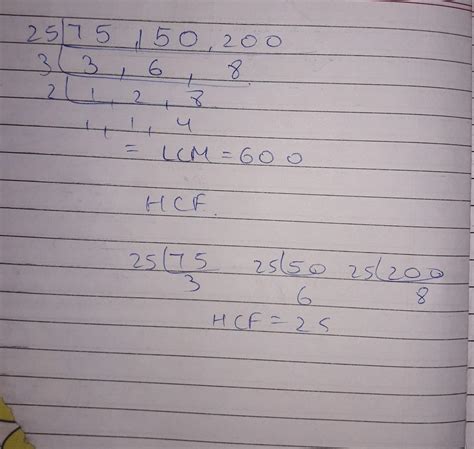 25 | 75, 150, 200
3 | 3, 6, 8
2 | 1, 2, 8
1, 1, 4
= LCM = 600
HCF.
25 | 75 25 | 50 25 | 200
3 6 8
HCF = 25